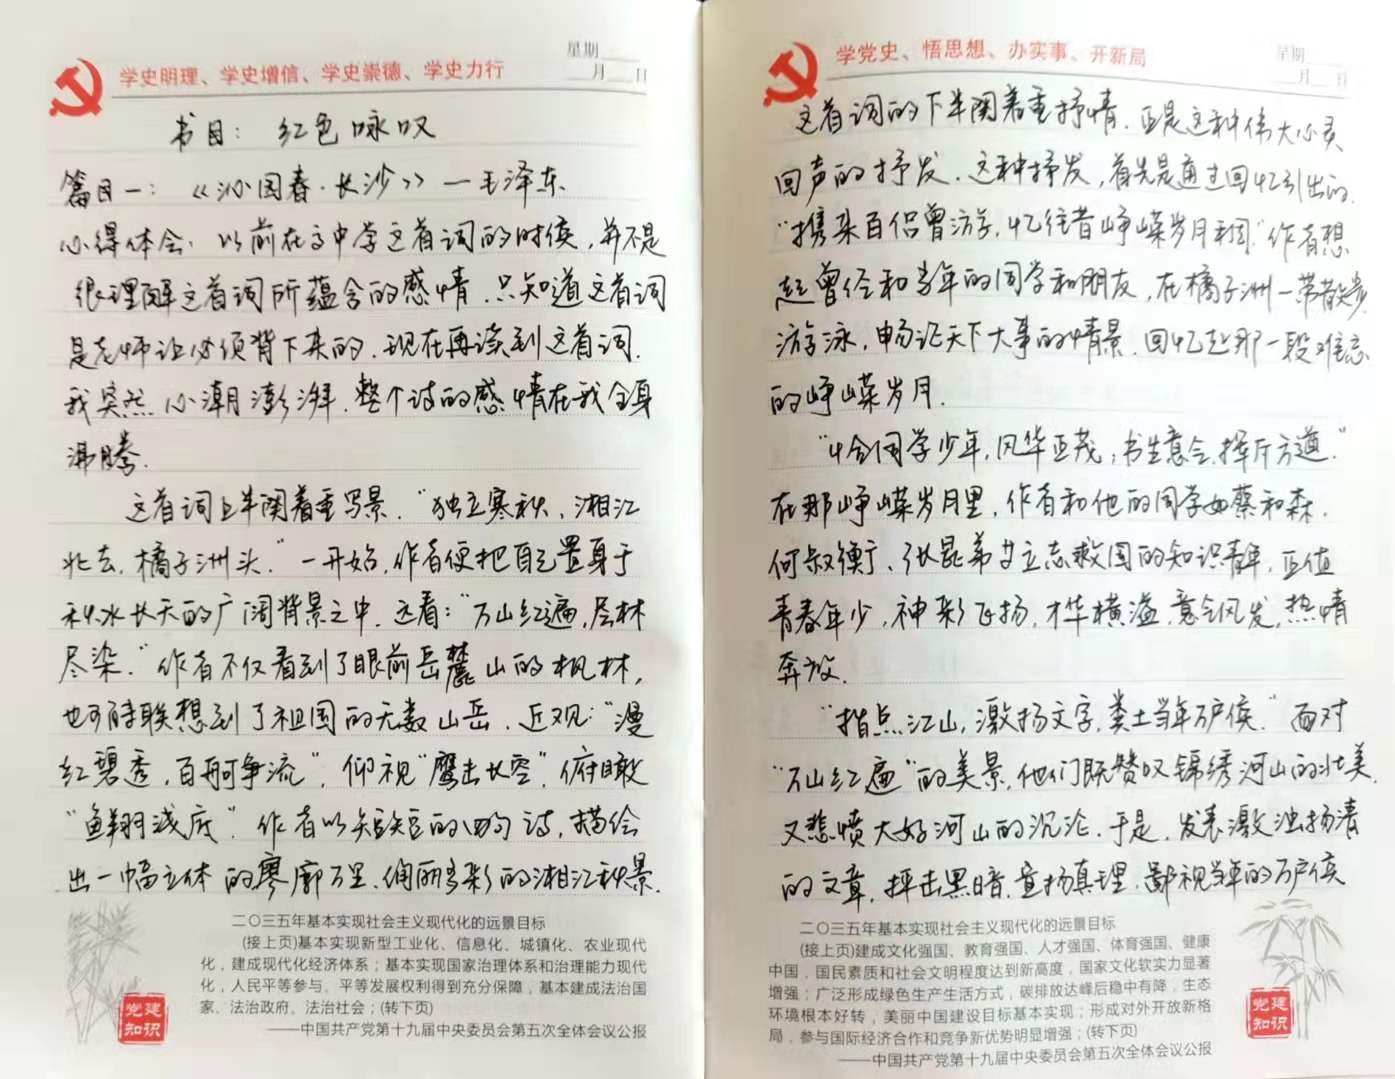 星期
月 日
学史明理、学史增信、学史崇德、学史力行
书目：红色咏叹
篇目一：《沁园春·长沙》—毛泽东
心得体会：以前在高中学这首词的时候，并不是
很理解这首词所蕴含的感情，只知道这首词
是老师让必须背下来的，现在再读到这首词，
我突然心潮澎湃，整个诗的感情在我全身
沸腾。
这首词上半阕着重写景，“独立寒秋，湘江
北去，橘子洲头。”一开始，作者便把自己置身于
秋水长天的广阔背景之中，远看：“万山红遍，层林
尽染。”作者不仅看到了眼前岳麓山的枫林，
也可能联想到了祖国的无数山岳，近观：“漫
红碧秀，百舸争流”，仰视“鹰击长空”，俯瞰
“鱼翔浅底”。作者以短短的四句诗，描绘
出一幅立体的寥廓万里、绚丽多彩的湘江秋景
二〇三五年基本实现社会主义现代化的远景目标
(接上页)基本实现新型工业化、信息化、城镇化、农业现代
化，建成现代化经济体系；基本实现国家治理体系和治理能力现代
化，人民平等参与、平等发展权利得到充分保障，基本建成法治国
家、法治政府、法治社会；(转下页)
——中国共产党第十九届中央委员会第五次全体会议公报
党建
知识
星期
月 日
学党史、悟思想、办实事、开新局
这首词的下半阕着重抒情，正是这种伟大心灵
回声的抒发，这种抒发，首先是通过回忆引出的，
“携来百侣曾游，忆往昔峥嵘岁月稠”作者想
起曾经和当年的同学和朋友，在橘子洲一带散步，
游泳，畅论天下大事的情景，回忆起那一段难忘
的峥嵘岁月。
“恰同学少年，风华正茂；书生意气，挥斥方遒。”
在那峥嵘岁月里，作者和他的同学如蔡和森、
何叔衡、张昆弟等立志救国的知识青年，正值
青春年少，神彩飞扬，才华横溢，意气风发，热情
奔放。
“指点江山，激扬文字，粪土当年万户侯。”面对
“万山红遍”的美景，他们既赞叹锦绣河山的壮美，
又悲愤大好河山的沉沦，于是，发表激浊扬清
的文章，抨击黑暗，宣扬真理，鄙视当年的万户侯
二〇三五年基本实现社会主义现代化的远景目标
(接上页)建成文化强国、教育强国、人才强国、体育强国、健康
中国，国民素质和社会文明程度达到新高度，国家文化软实力显著
增强；广泛形成绿色生产生活方式，碳排放达峰后稳中有降，生态
环境根本好转，美丽中国建设目标基本实现；形成对外开放新格
局，参与国际经济合作和竞争新优势明显增强；(转下页)
——中国共产党第十九届中央委员会第五次全体会议公报
党建
知识